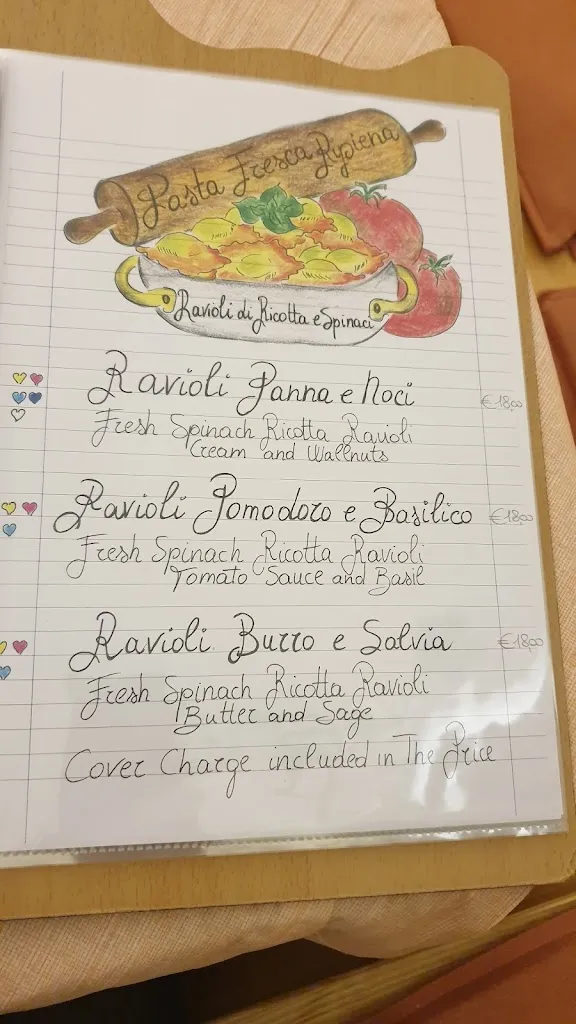 Pasta Fresca Rypiena
Ravioli di Ricotta e Spinaci
Ravioli Panna e Noci
€18,00
Fresh Spinach Ricotta Ravioli
Cream and Wallnuts
Ravioli Pomodoro e Basilico
€18,00
Fresh Spinach Ricotta Ravioli
Tomato Sauce and Basil
Ravioli Burro e Salvia
€18,00
Fresh Spinach Ricotta Ravioli
Butter and Sage
Cover Charge included in The Price